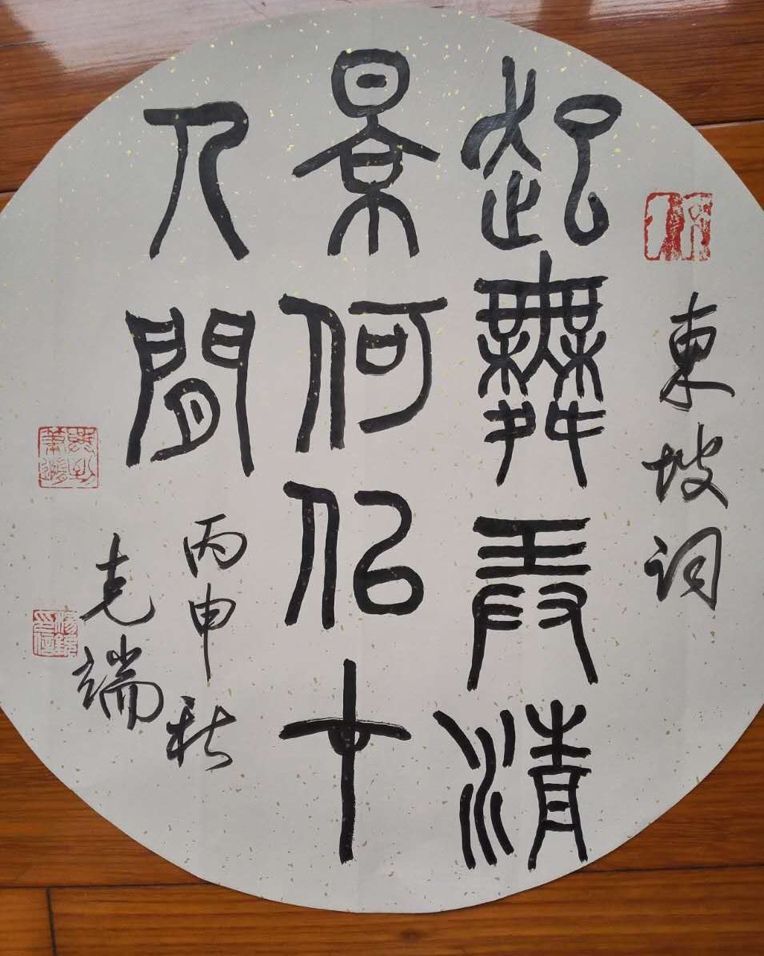 東坡词
起舞弄清
景何似在
人間
丙申秋
克端